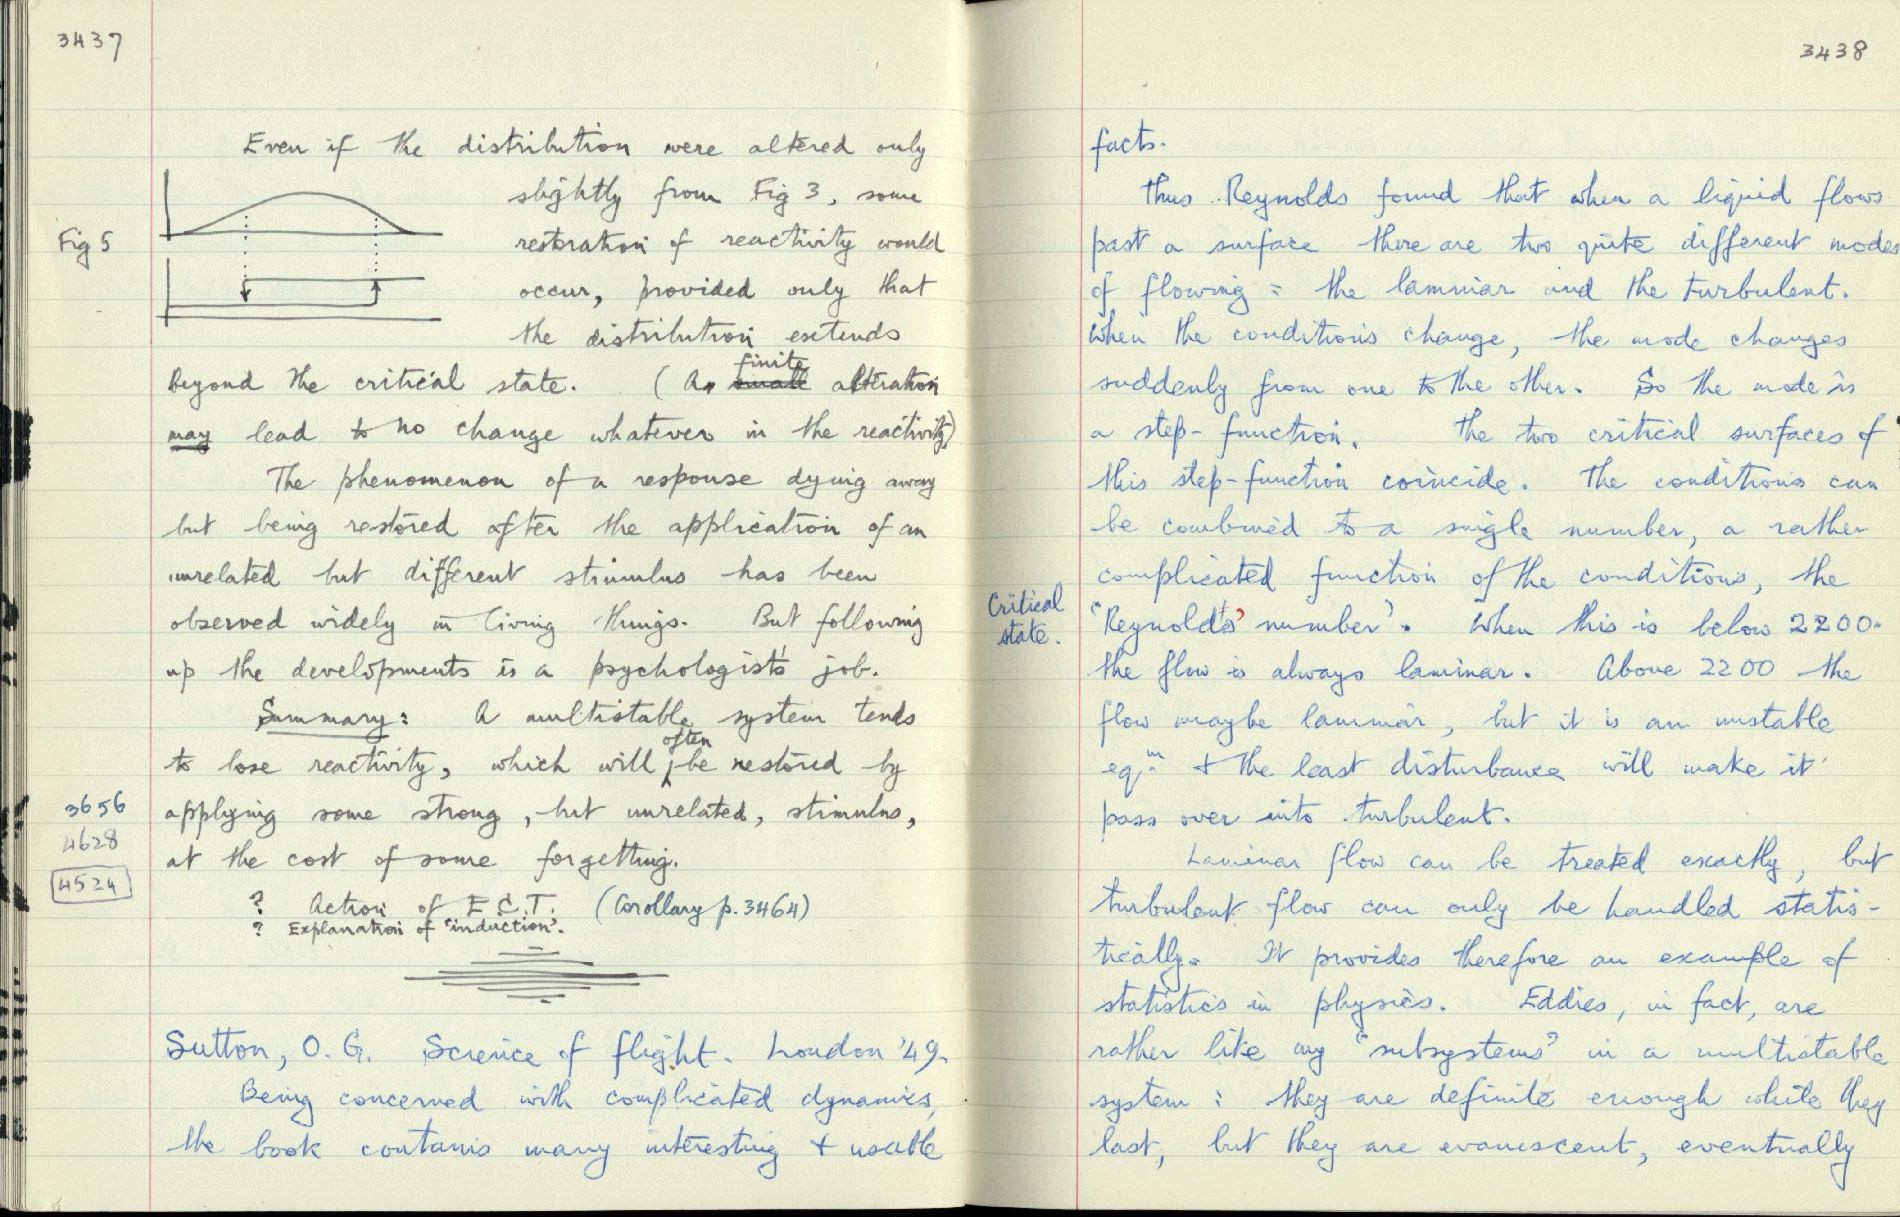 3437
Even if the distribution were altered only
slightly from Fig 3, some
Fig 5
restoration of reactivity would
occur, provided only that
the distribution extends
beyond the critical state. (A finite small alteration
may lead to no change whatever in the reactivity)
The phenomenon of a response dying away
but being restored after the application of an
unrelated but different stimulus has been
observed widely in living things. But following
up the developments is a psychologist's job.
Summary: A multistable system tends
to lose reactivity, which will often be restored by
3656
applying some strong, but unrelated, stimulus,
4628
at the cost of some forgetting.
4524
? Action of E.C.T. (Corollary p. 3464)
? Explanation of "induction".
Sutton, O. G. Science of flight. London '49.
Being concerned with complicated dynamics,
the book contains many interesting + usable
3438
facts.
Thus Reynolds found that when a liquid flows
past a surface there are two quite different modes
of flowing: the laminar and the turbulent.
When the conditions change, the mode changes
suddenly from one to the other. So the mode is
a step-function. The two critical surfaces of
this step-function coincide. The conditions can
be combined to a single number, a rather
complicated function of the conditions, the
Critical
state.
"Reynolds' number". When this is below 2200
the flow is always laminar. Above 2200 the
flow maybe laminar, but it is an unstable
eq.m + the least disturbance will make it
pass over into turbulent.
Laminar flow can be treated exactly, but
turbulent flow can only be handled statis-
tically. It provides therefore an example of
statistics in physics. Eddies, in fact, are
rather like my "subsystems" in a multistable
system: they are definite enough while they
last, but they are evanescent, eventually